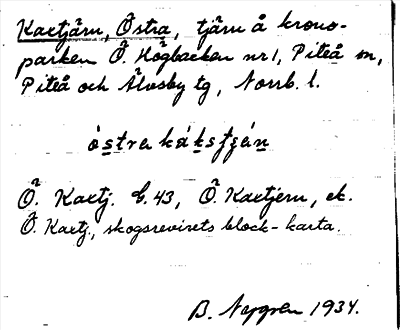 Kaxtjärn, Östra, tjärn å krono-
parken Ö. Högbacken nr 1, Piteå sn,
Piteå och Älvsby tg, Norrb. l.
östra káksʃʒán
Ö. Kaxtj. E.43, Ö. Kaxtjern, ek.
Ö. Kaxtj., skogsrevirets block-karta.
B. Nygren 1934.